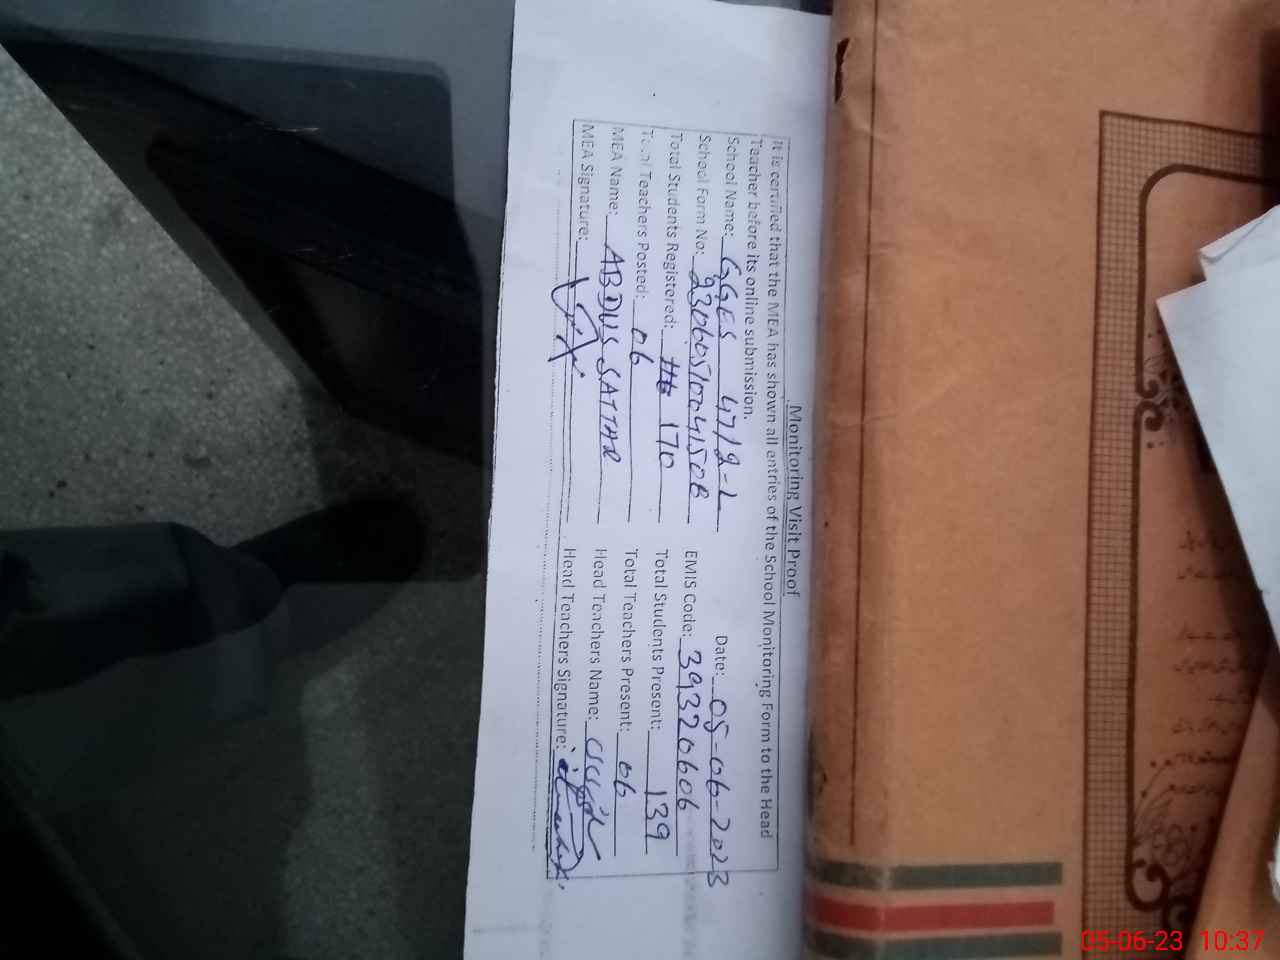 Monitoring Visit Proof
It is certified that the MEA has shown all entries of the School Monitoring Form to the Head
Teacher before its online submission.
School Name: GGES 47/2-L Date: 05-06-2023
School Form No: EMIS Code: 39320606
Total Students Registered: 170 Total Students Present: 139
Total Teachers Posted: 06 Total Teachers Present: 06
MEA Name: ABDUS SATTAR Head Teachers Name:
MEA Signature: Head Teachers Signature:
05-06-23 10:37